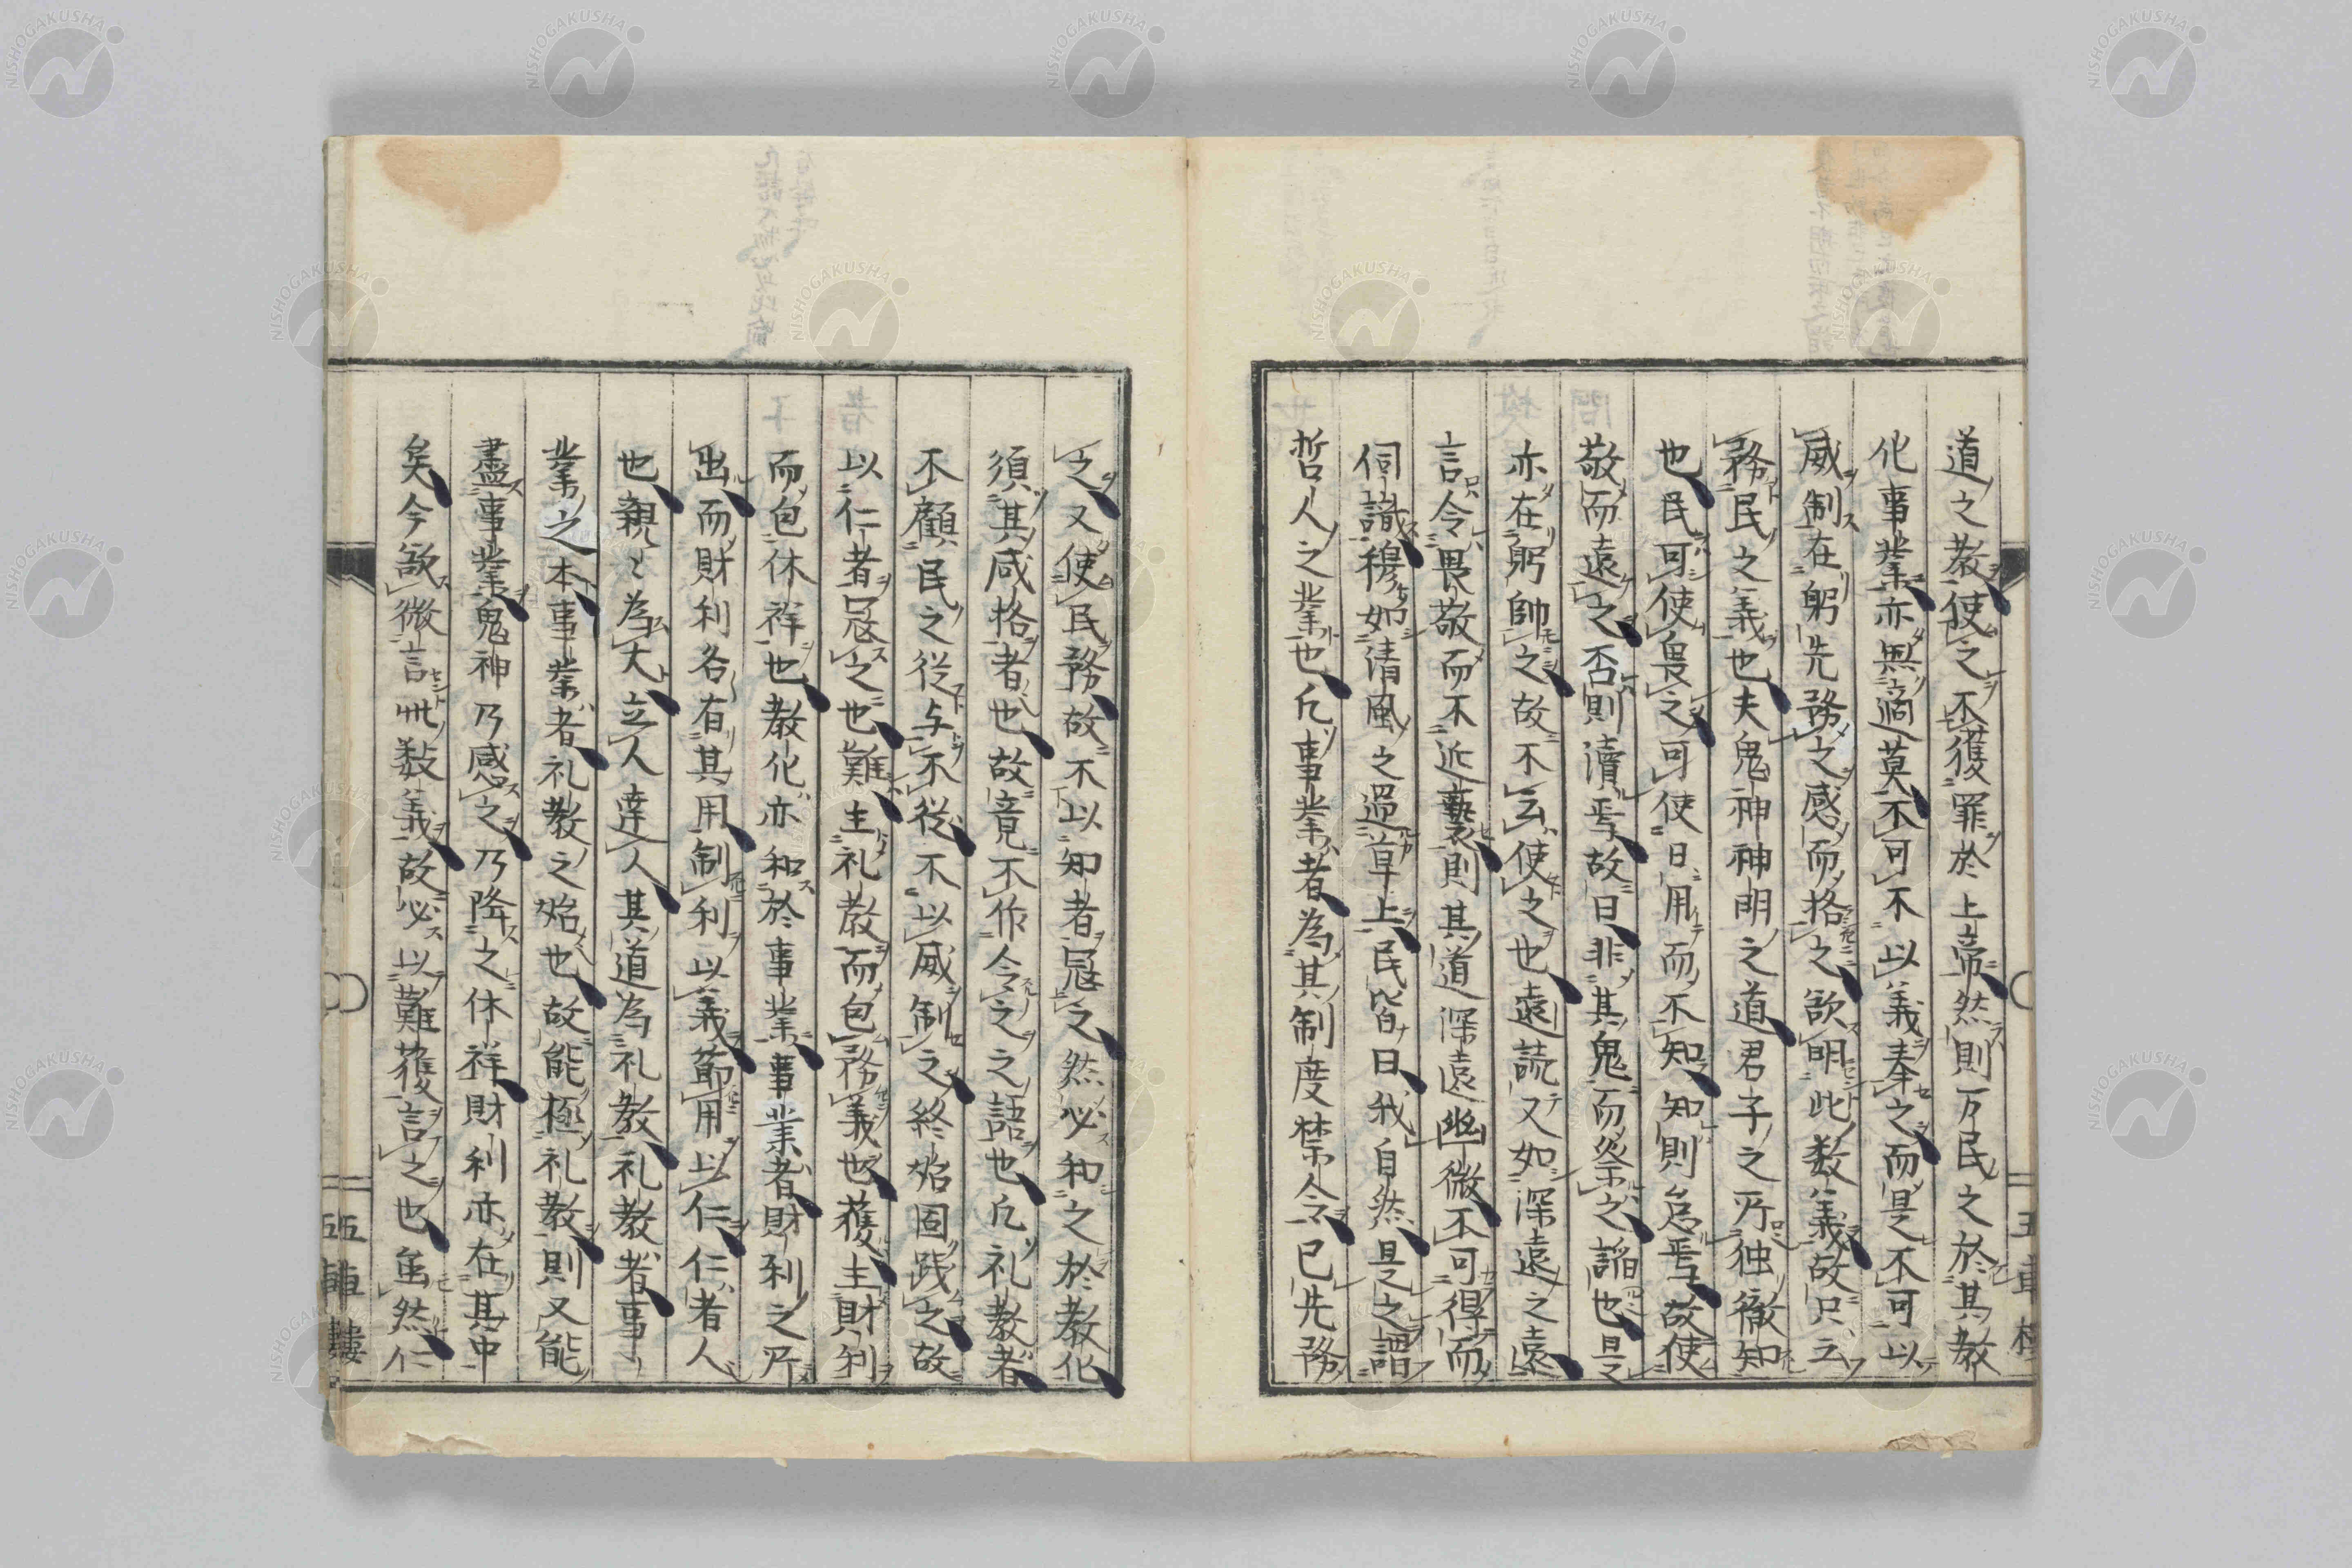 道之教使之不獲罪於上帝然則万民之於其教
化事業亦無適莫不可不以義奉之而是不可以
威制在躬先務之感而格之欲明此数義故只云
務民之義也夫鬼神神明之道君子之所独徹知
也民可使畏之可使日用而不知知則怠焉故使
敬而遠之否則瀆焉故曰非其鬼而祭之諂也是
亦在躬帥之故不云使之也遠読又如深遠之遠
言令畏敬而不近褻則其道深遠幽微不可得而
伺識穆如清風之過草上民皆曰我自然是之謂
哲人之業也凡事業者為其制度禁令已先務
之又使民務故不以知者冠之然必和之於教化
須其咸格者也故竟不作令之之語也凡礼教者
不顧民之従与不従不以威制之終始固践之故
以仁者冠之也難主礼教而包務義也獲主財利
而包休祥也教化亦和於事業事業者財利之所
出而財利各有其用制利以義節用以仁仁者人
也親々為大立人達人其道為礼教礼教者事
業之本事業者礼教之始也故能極礼教則又能
盡事業鬼神乃感之乃降之休祥財利亦在其中
矣今欲微言此数義故必以難獲言之也虽然仁
五車楼
NISHOGAKUSHA